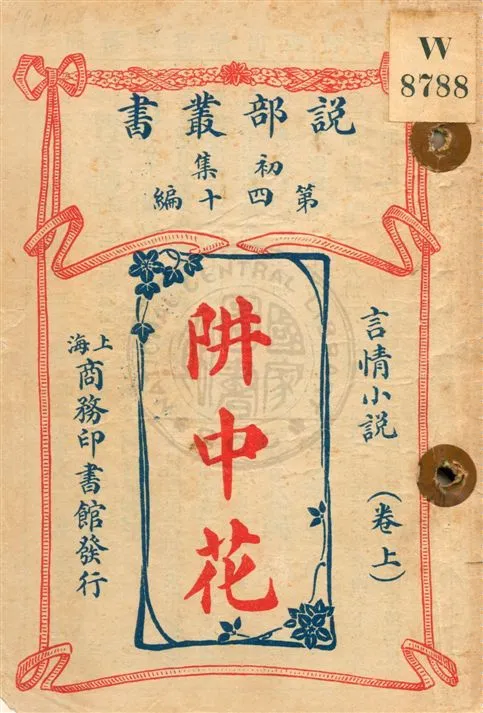 W
8788
說部叢書
初集
第四十編
言情小說（卷上）
阱中花
上海商務印書館發行
CENTRAL